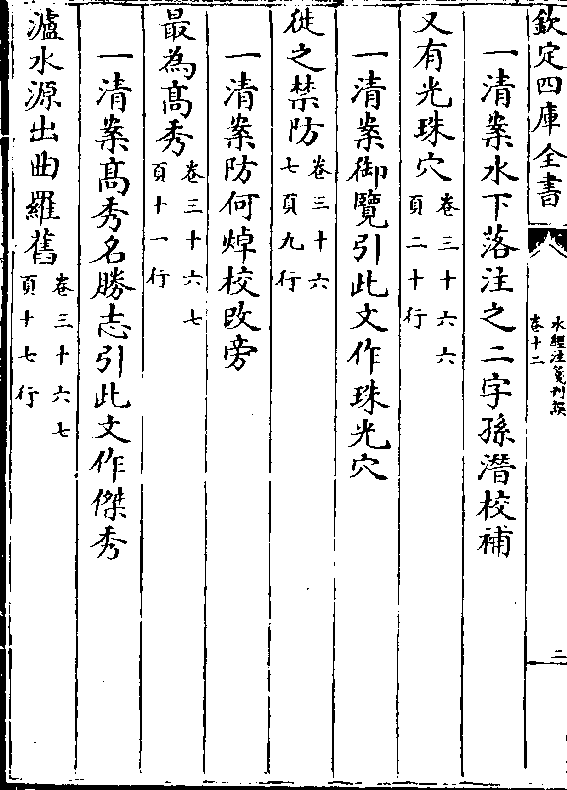 欽定四庫全書
水經注箋刊誤
卷十二
二
一清案水下落注之二字孫潛校補
又有光珠穴卷三十六六頁二十行
一清案御覽引此文作珠光穴
徙之禁防卷三十六七頁九行
一清案防何焯校改旁
最為髙秀卷三十六七頁十一行
一清案髙秀名勝志引此文作傑秀
瀘水源出曲羅舊卷三十六七頁十七行